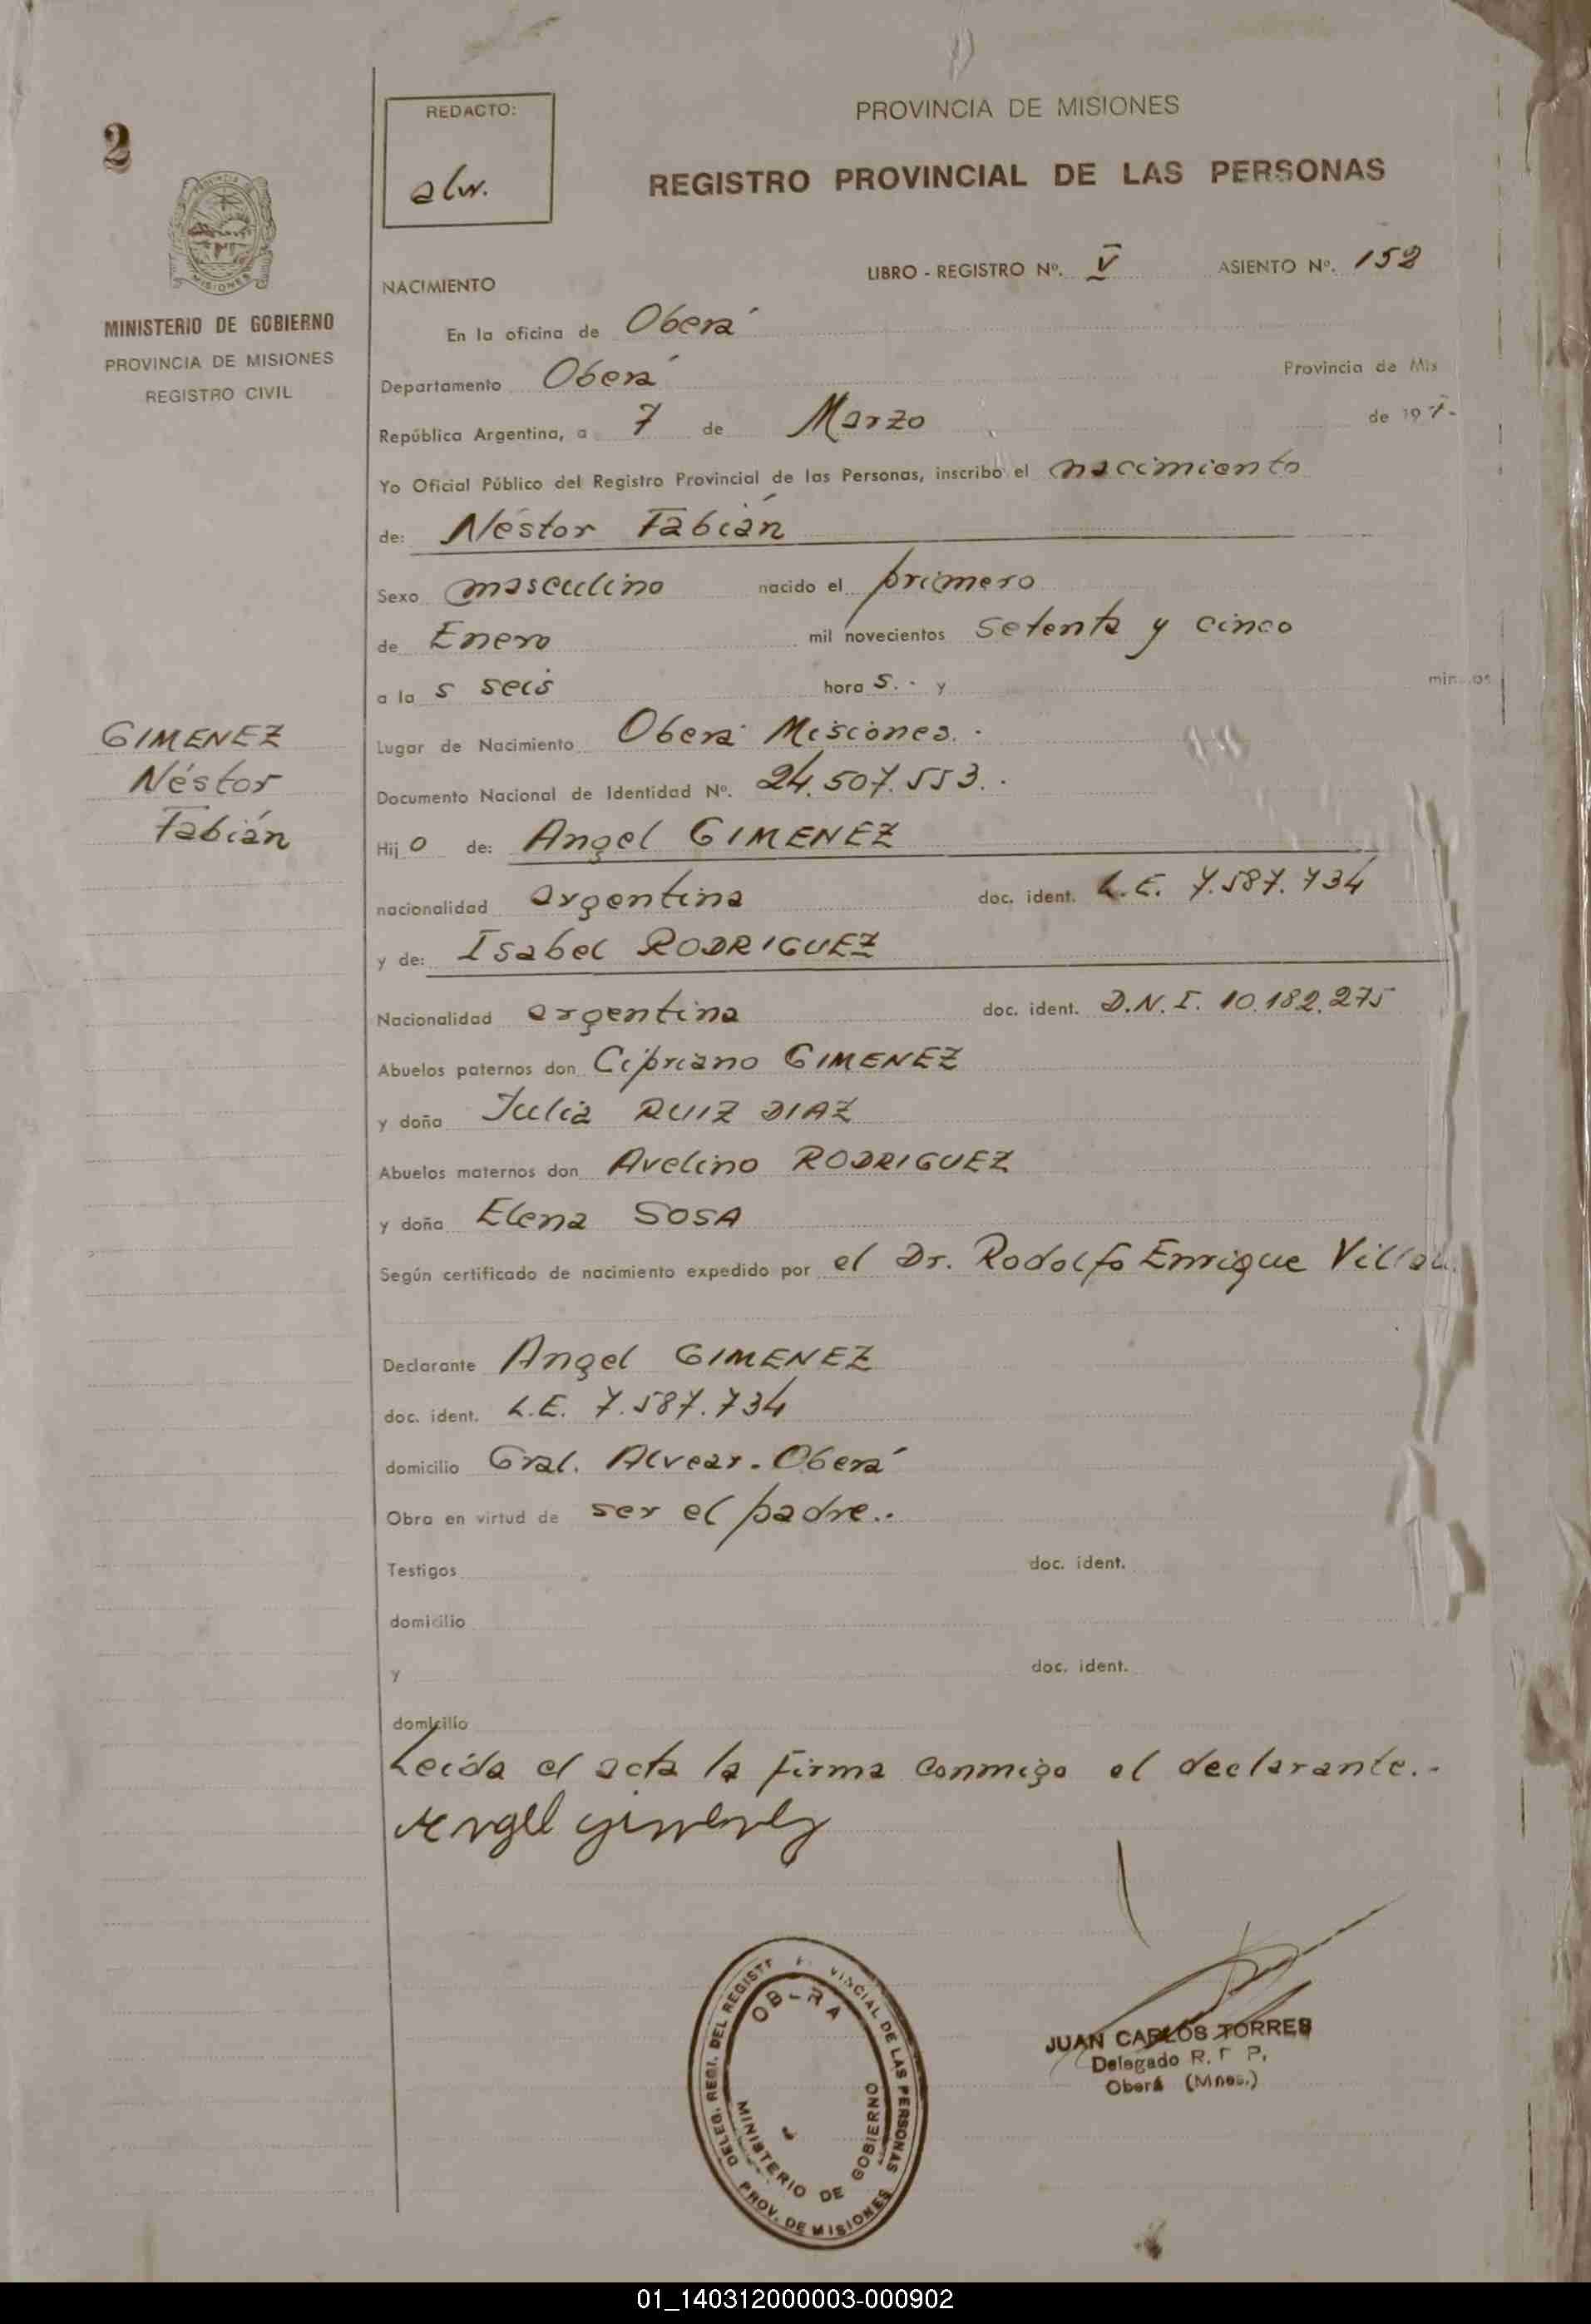 2
REDACTO:
alw.
PROVINCIA DE MISIONES
REGISTRO PROVINCIAL DE LAS PERSONAS
MISIONES
MINISTERIO DE GOBIERNO
PROVINCIA DE MISIONES
REGISTRO CIVIL
LIBRO - REGISTRO Nº. V ASIENTO Nº. 152
NACIMIENTO
En la oficina de Oberá
Departamento Oberá Provincia de Mis
República Argentina, a 7 de Marzo de 197
Yo Oficial Público del Registro Provincial de las Personas, inscribo el nacimiento
de: Néstor Fabián
Sexo masculino nacido el primero
de Enero mil novecientos setenta y cinco
a la s seis hora s. y
Lugar de Nacimiento Oberá Misiones.
Documento Nacional de Identidad Nº. 24.507.553.
Hij o de: Angel GIMENEZ
nacionalidad argentina doc. ident. L.E. 7.587.734
y de: Isabel RODRIGUEZ
Nacionalidad argentina doc. ident. D.N.I. 10.182.275
Abuelos paternos don Cipriano GIMENEZ
y doña Julia RUIZ DIAZ
Abuelos maternos don Avelino RODRIGUEZ
y doña Elena SOSA
Según certificado de nacimiento expedido por el Dr. Rodolfo Enrique
Declarante Angel GIMENEZ
doc. ident. L.E. 7.587.734
domicilio Gral. Alvear - Oberá
Obra en virtud de ser el padre.
Testigos doc. ident.
domicilio
y doc. ident.
domicilio
Leída el acta la firma conmigo el declarante.
Angel Gimenez
GIMENEZ
Néstor
Fabián
DELEG. REGI. DEL REGISTR VINCIAL DE LAS PERSONAS
OBERA
MINISTERIO DE GOBIERNO
PROV. DE MISIONES
JUAN CARLOS TORRES
Delegado R. P.
Oberá (Mnes.)
01_140312000003-000902